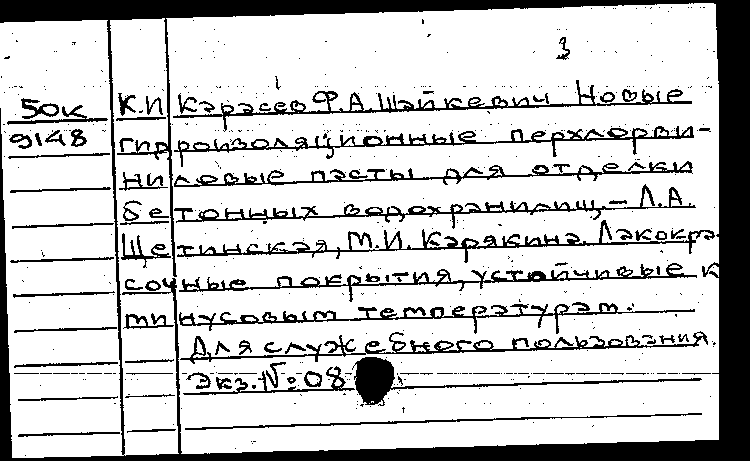 3
50к К.И Карасев Ф.А. Шайкевич Новые
9148 гидроизоляционные перхлорви-
ниловые пасты для отделки
бетонных водохранилищ, – Л.А.
Щетинская, М.И. Карякина. Лакокра-
сочные покрытия, устойчивые к
минусовым температурам.
Для служебного пользования.
Экз. № 08